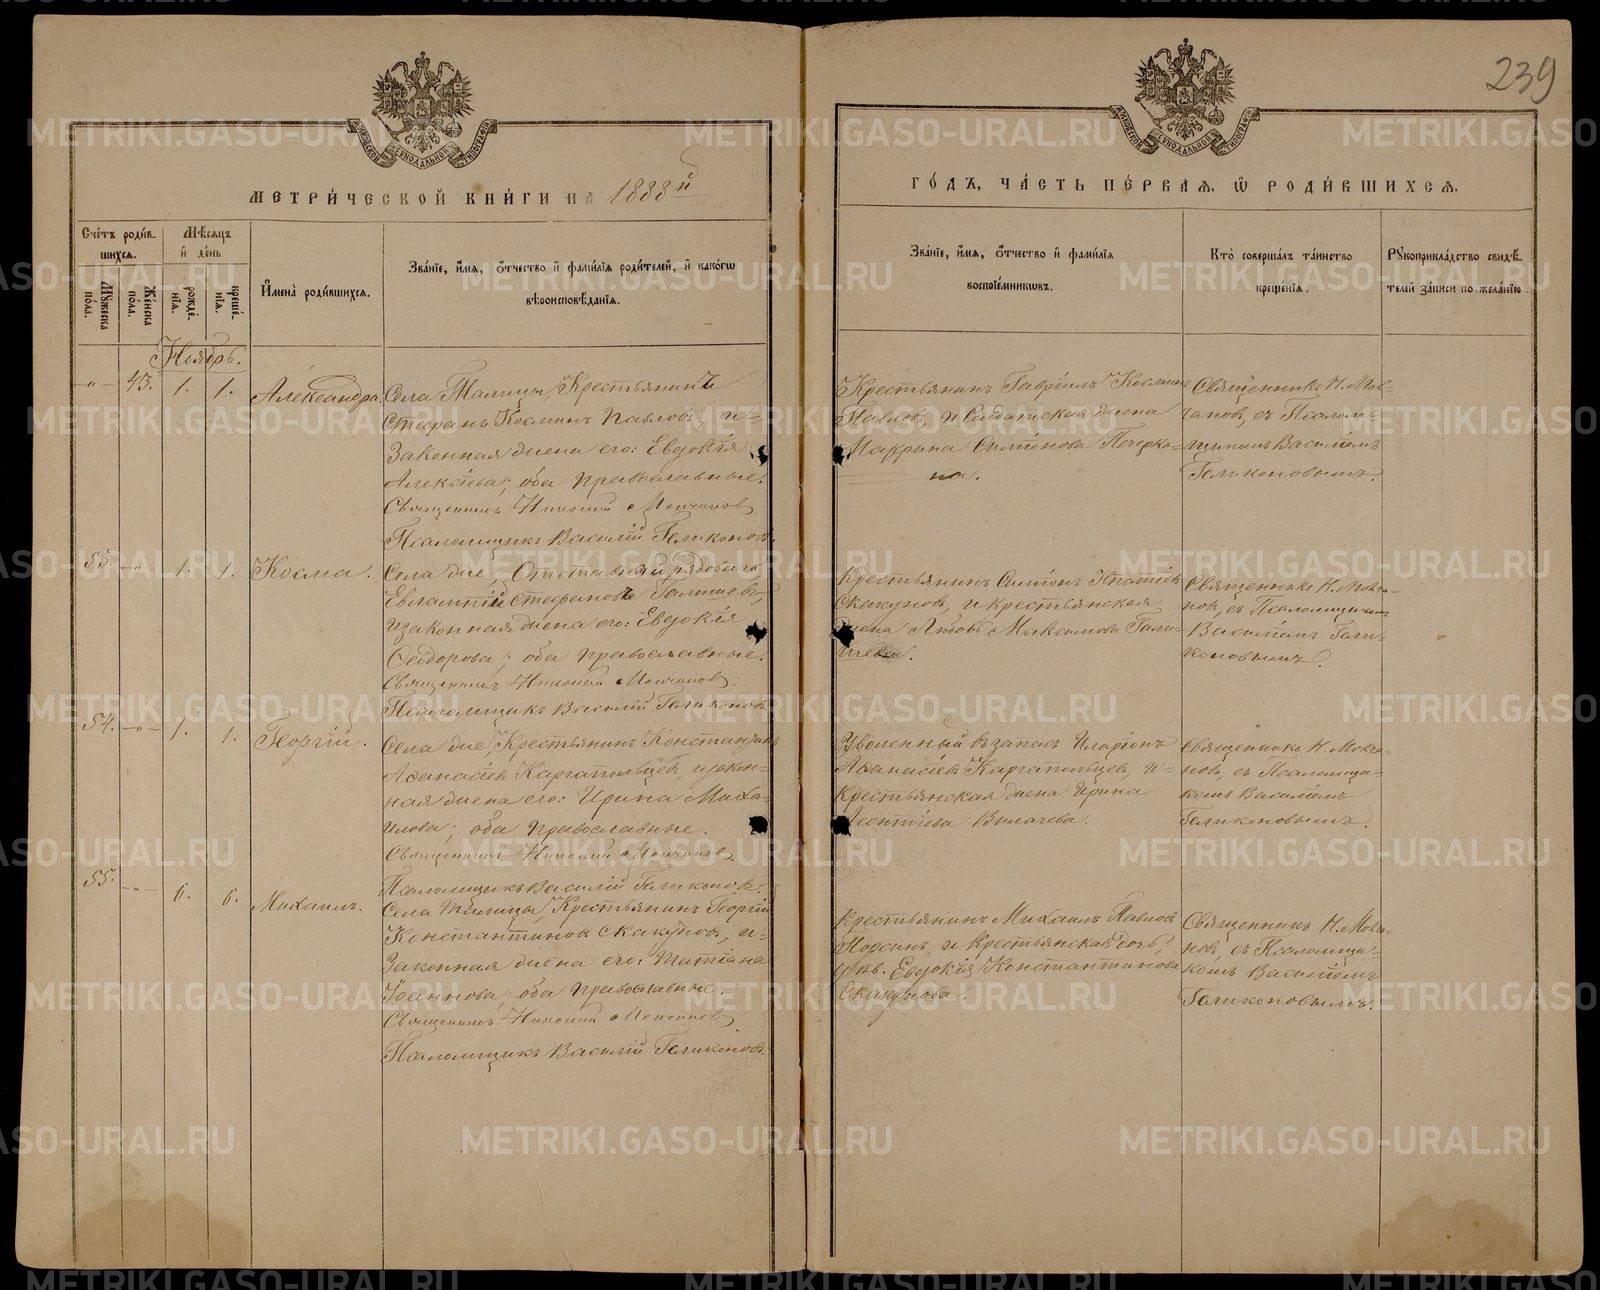 239
МЕТРИ́ЧЕСКОЙ КНИ́ГИ НА 1888й
ГО́ДЪ, ЧА́СТЬ ПЕ́РВАЯ, Ѿ РОДИ́ВШИХСЯ.
Сче́тъ роди́в-
шихся.
Мꙋжеска по́ла.
Же́нска по́ла.
Мѣ́сяцъ
и҆ де́нь
рожде́нїя.
креще́нїя.
И҆мена̀ роди́вшихся.
Зва́нїе, и҆́мя, ѻ҆́тчество и҆ фами́лїя роди́телей, и҆ како́гѡ
вѣроисповѣ́данїя.
Зва́нїе, и҆́мя, ѻ҆́тчество и҆ фами́лїя
воспрїе́мниковъ.
Кто̀ соверша́лъ та́инство
креще́нїя.
Рꙋкоприкла́дство свидѣ́-
телей за́писи по жела́нїю.
Ноябрь.
-"- 43. 1. 1. Александра.
Села Талицы, Крестьянинъ
Стефанъ Космин Павловъ, и-
Законная жена его: Евдокія
Алексіева; оба православные.
Священникъ Николай Молчанов
Псаломщикъ Василій Геликоновъ.
Крестьянин Гавріилъ Космин
Павловъ, и Солдатская жена
Маррина Симонова Печерки-
на.
Священникъ Н. Мол-
чанов, съ Псалом-
щикомъ Василіемъ
Геликоновымъ.
53. -"- 1. 1. Косма.
Села тоже, Отставной рядовой
Евлампій Стефановъ Галишев,
и законная жена его: Евдокія
Сидорова; оба православные.
Священникъ Николай Молчанов.
Псаломщикъ Василій Геликонов.
Крестьянин Симон Ипатіев
Скакунов, и крестьянская
жена Любовь Максимова Гали-
шева.
Священникъ Н. Молча-
нов, съ Псаломщиком
Василіем Гели-
коновымъ.
54. -"- 1. 1. Георгій.
Села тоже, Крестьянинъ Константин
Афанасіев Каргапольцев, и закон-
ная жена его: Ирина Миха-
илова; оба православные.
Священникъ Николай Молчанов
Псаломщикъ Василій Геликонов.
Уволенный въ запасъ Иларіон
Афанасіевъ Каргапольцев, и-
Крестьянская жена Ирина
Леонтіева Вылачева.
Священникъ Н. Молча-
нов, съ Псаломщи-
комъ Василіем
Геликоновымъ.
55. -"- 6. 6. Михаилъ.
Села Талицы, Крестьянинъ Георгій
Константинов Скакунов, и-
Законная жена его: Татіана
Іоаннова; оба православные.
Священникъ Николай Молчанов
Псаломщикъ Василій Геликонов.
Крестьянинъ Михаилъ Павлов
и Крестьянская дочь,
Евдокія Константинова
Скакунова.
Священник Н. Молча-
нов, съ Псаломщи-
комъ Василіемъ
Геликоновымъ.